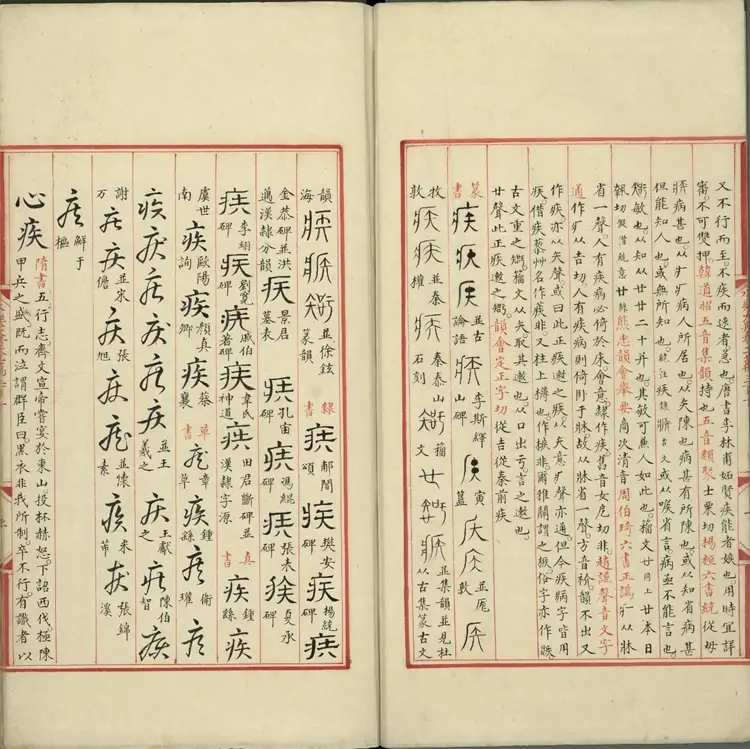 又不行而至。不疾而速者。急也。唐書李林甫妬賢疾能者。嫉也。用時宜詳
審。不可雙押。韓道昭五音集韻持也。五音類聚士栗切。楊桓六書統從母
病甚也。从疒。疒病人所居也。从矢。陳也。病甚有所陳也。或从知省。病甚
但能知人也。或無所知也。統注疾古文。或从喉省言。病亟不能言也。
敏也。从知从廿。廿二十并也。其敏可兼人如此也。籀文廿廿本日
執切。熊忠韻會舉要商次清音。周伯琦六書正譌疒从牀
省一聲。人有疾病必倚於床。會意。隸作疾。舊音女戹切。非。趙謙聲音文字
通作疒从吉切。人有疾病則倚附于牀。故从牀省一聲。方音袗。韻不出。又
作疾。亦从矢聲。或曰此正疾速之疾。从矢意。疒聲亦通。但今疾病字皆用
疾。借疾。蒺艸名。作疾。非。又柱上栱也。作槉。非。爾雅關謂之槉。俗字亦作
古文重之。籀文从矢。取其速也。从口出亏言之速也。
廿聲。此正疾速之。韻會定正字切從吉從秦前疾
篆書 疾 疾 疾 並古論語 疾 李斯繹山碑 疾 寅簋 疾 疾 並戹敦 疾
牧敦 疾 疾 並秦權 疾 秦泰山石刻 籀文 廿 並集韻並見杜从古集篆古文
韻海 疾 疾 並徐鉉篆韻 隸書 疾 郙閣頌 疾 樊安碑 疾 楊統
金恭碑並洪邁漢隸分韻 疾 景君墓表 疾 孔宙碑 疾 馮緄碑 疾 張表碑 疾 夏承碑
疾 李翊碑 疾 劉寬碑 疾 戚伯著碑 疾 韋氏神道 疾 田君斷碑並漢隸字源 真書 疾 鍾繇 疾
虞世南 疾 歐陽詢 疾 顏真卿 疾 蔡襄 草書 疾 章草 疾 鍾繇 疾 衛瓘 疾
疾 疾 疾 疾 疾 並王羲之 疾 王獻之 疾 陳伯智 疾
謝万 疾 疾 並宋儋 疾 張旭 疾 疾 並懷素 疾 米芾 疾 張錦溪
疾 鮮于樞
心疾 隋書五行志。齊文宣帝嘗宴於東山。投杯赫怒。下詔西伐。極陳
甲兵之盛。既而泣謂羣臣曰。黑衣非我所制。卒不行。有識者以